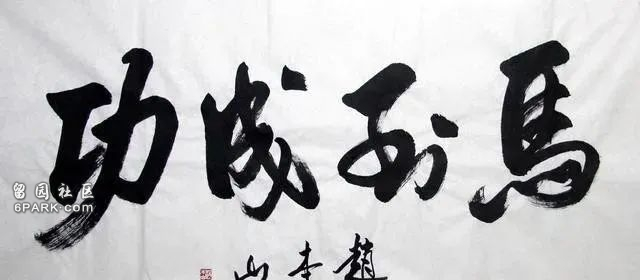 馬到成功
趙本山
留园社区
6PARK.COM